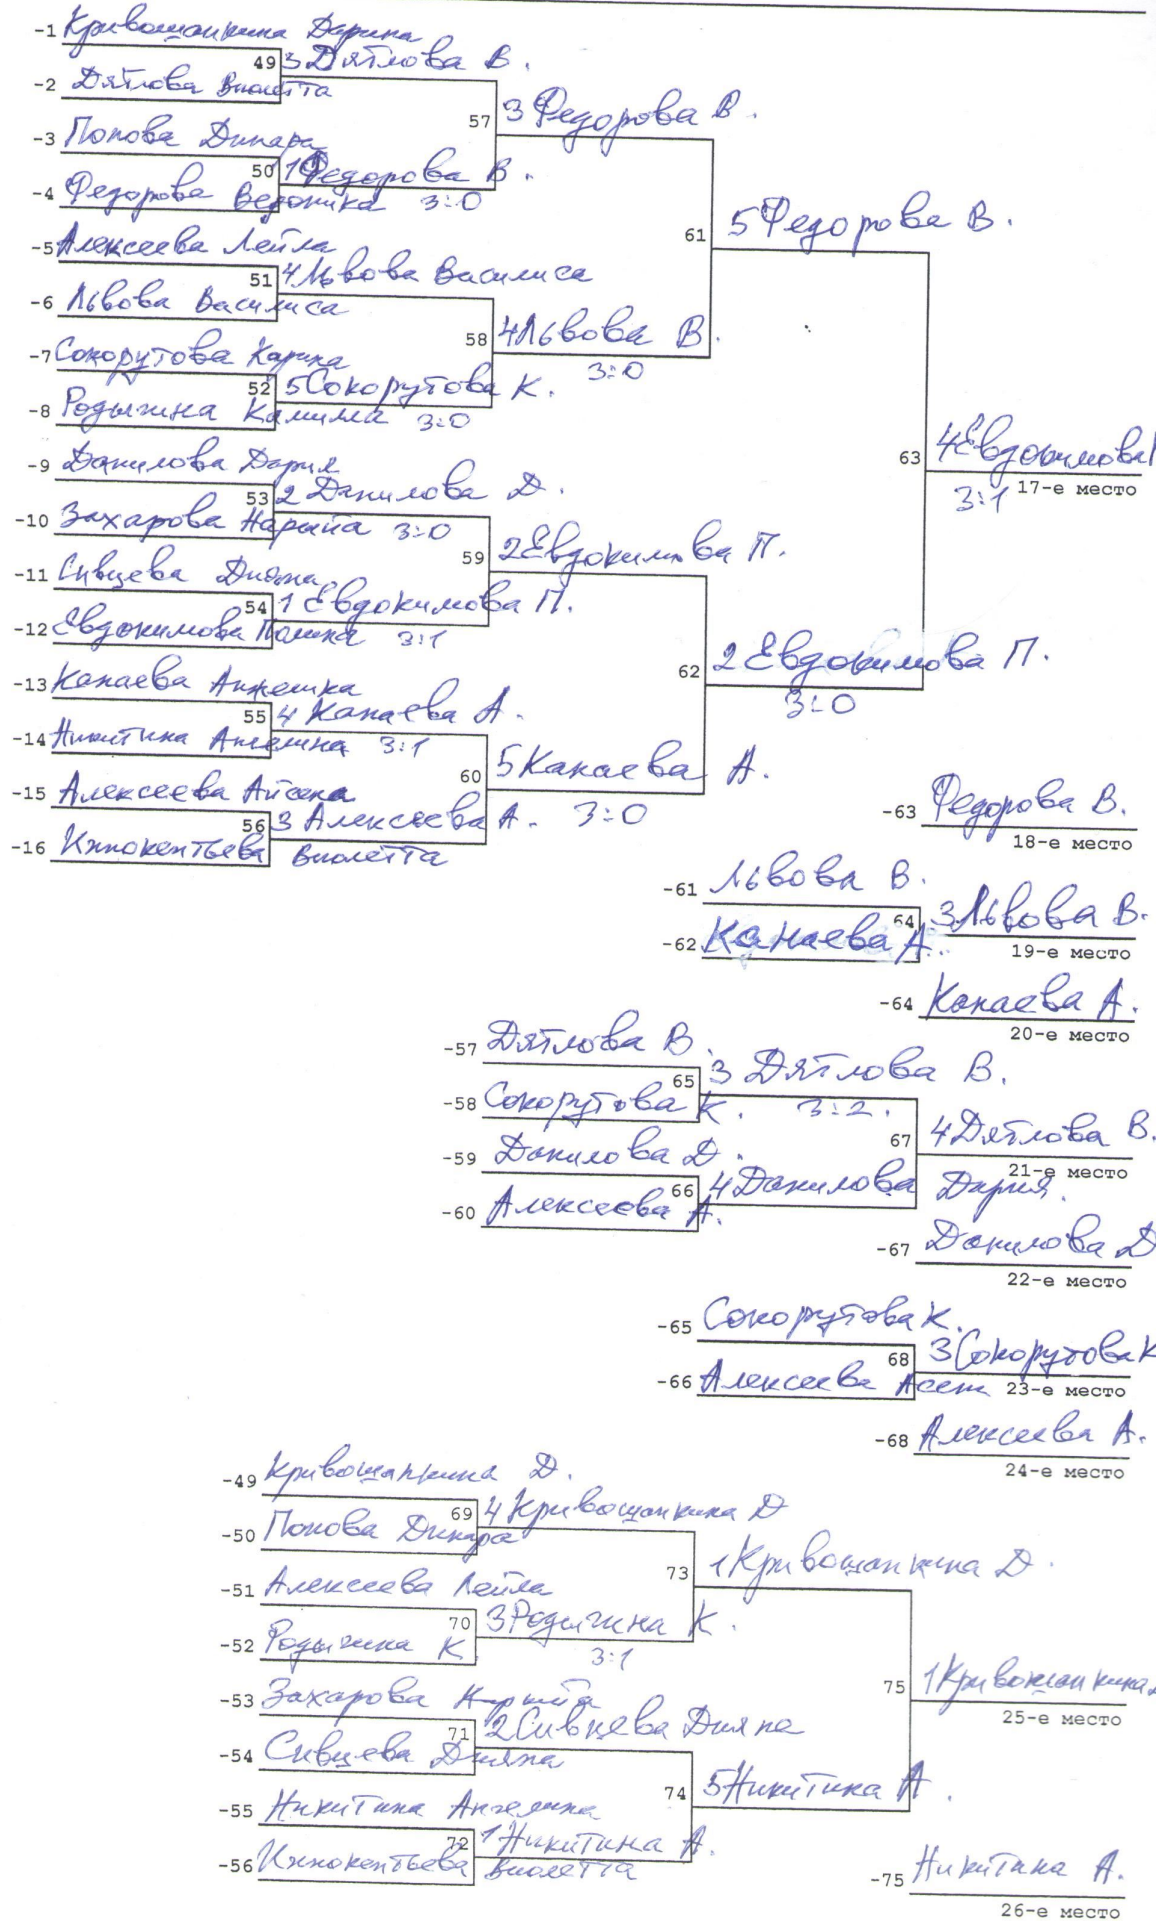 -1 Кривошапкина Дарина
49 3 Дятлова В.
-2 Дятлова Виолетта
57 3 Федорова В.
-3 Попова Динара
50 1 Федорова В.
-4 Федорова Вероника 3:0
61 5 Федорова В.
-5 Алексеева Лейла
51 4 Львова Василиса
-6 Львова Василиса
58 4 Львова В.
3:0
-7 Сокорутова Карина
52 5 Сокорутова К.
-8 Родыгина Камилла 3:0
63 4 Евдокимова П
3:1 17-е место
-9 Данилова Дария
53 2 Данилова Д.
-10 Захарова Нарыйа 3:0
59 2 Евдокимова П.
-11 Сивцева Диана
54 1 Евдокимова П.
-12 Евдокимова Полина 3:1
62 2 Евдокимова П.
3:0
-13 Канаева Анжелика
55 4 Канаева А.
-14 Никитина Ангелина 3:1
60 5 Канаева А.
3:0
-15 Алексеева Айсена
56 3 Алексеева А.
-16 Иннокентьева Виолетта
-63 Федорова В.
18-е место
-61 Львова В.
64 3 Львова В.
-62 Канаева А.
19-е место
-64 Канаева А.
20-е место
-57 Дятлова В.
65 3 Дятлова В.
-58 Сокорутова К. 3:2.
67 4 Дятлова В.
21-е место
-59 Данилова Д.
66 4 Данилова Дария.
-60 Алексеева А.
-67 Данилова Д
22-е место
-65 Сокорутова К.
68 3 Сокорутова К
-66 Алексеева 23-е место
-68 Алексеева А.
24-е место
-49 Кривошапкина Д.
69 4 Кривошапкина Д
-50 Попова Динара
73 1 Кривошапкина Д.
-51 Алексеева Лейла
70 3 Родыгина К.
-52 Родыгина К 3:1
75 1 Кривошапкина
25-е место
-53 Захарова
71 2 Сивцева Диана
-54 Сивцева Диана
74 5 Никитина А.
-55 Никитина Ангелина
72 1 Никитина А.
-56 Иннокентьева Виолетта
-75 Никитина А.
26-е место